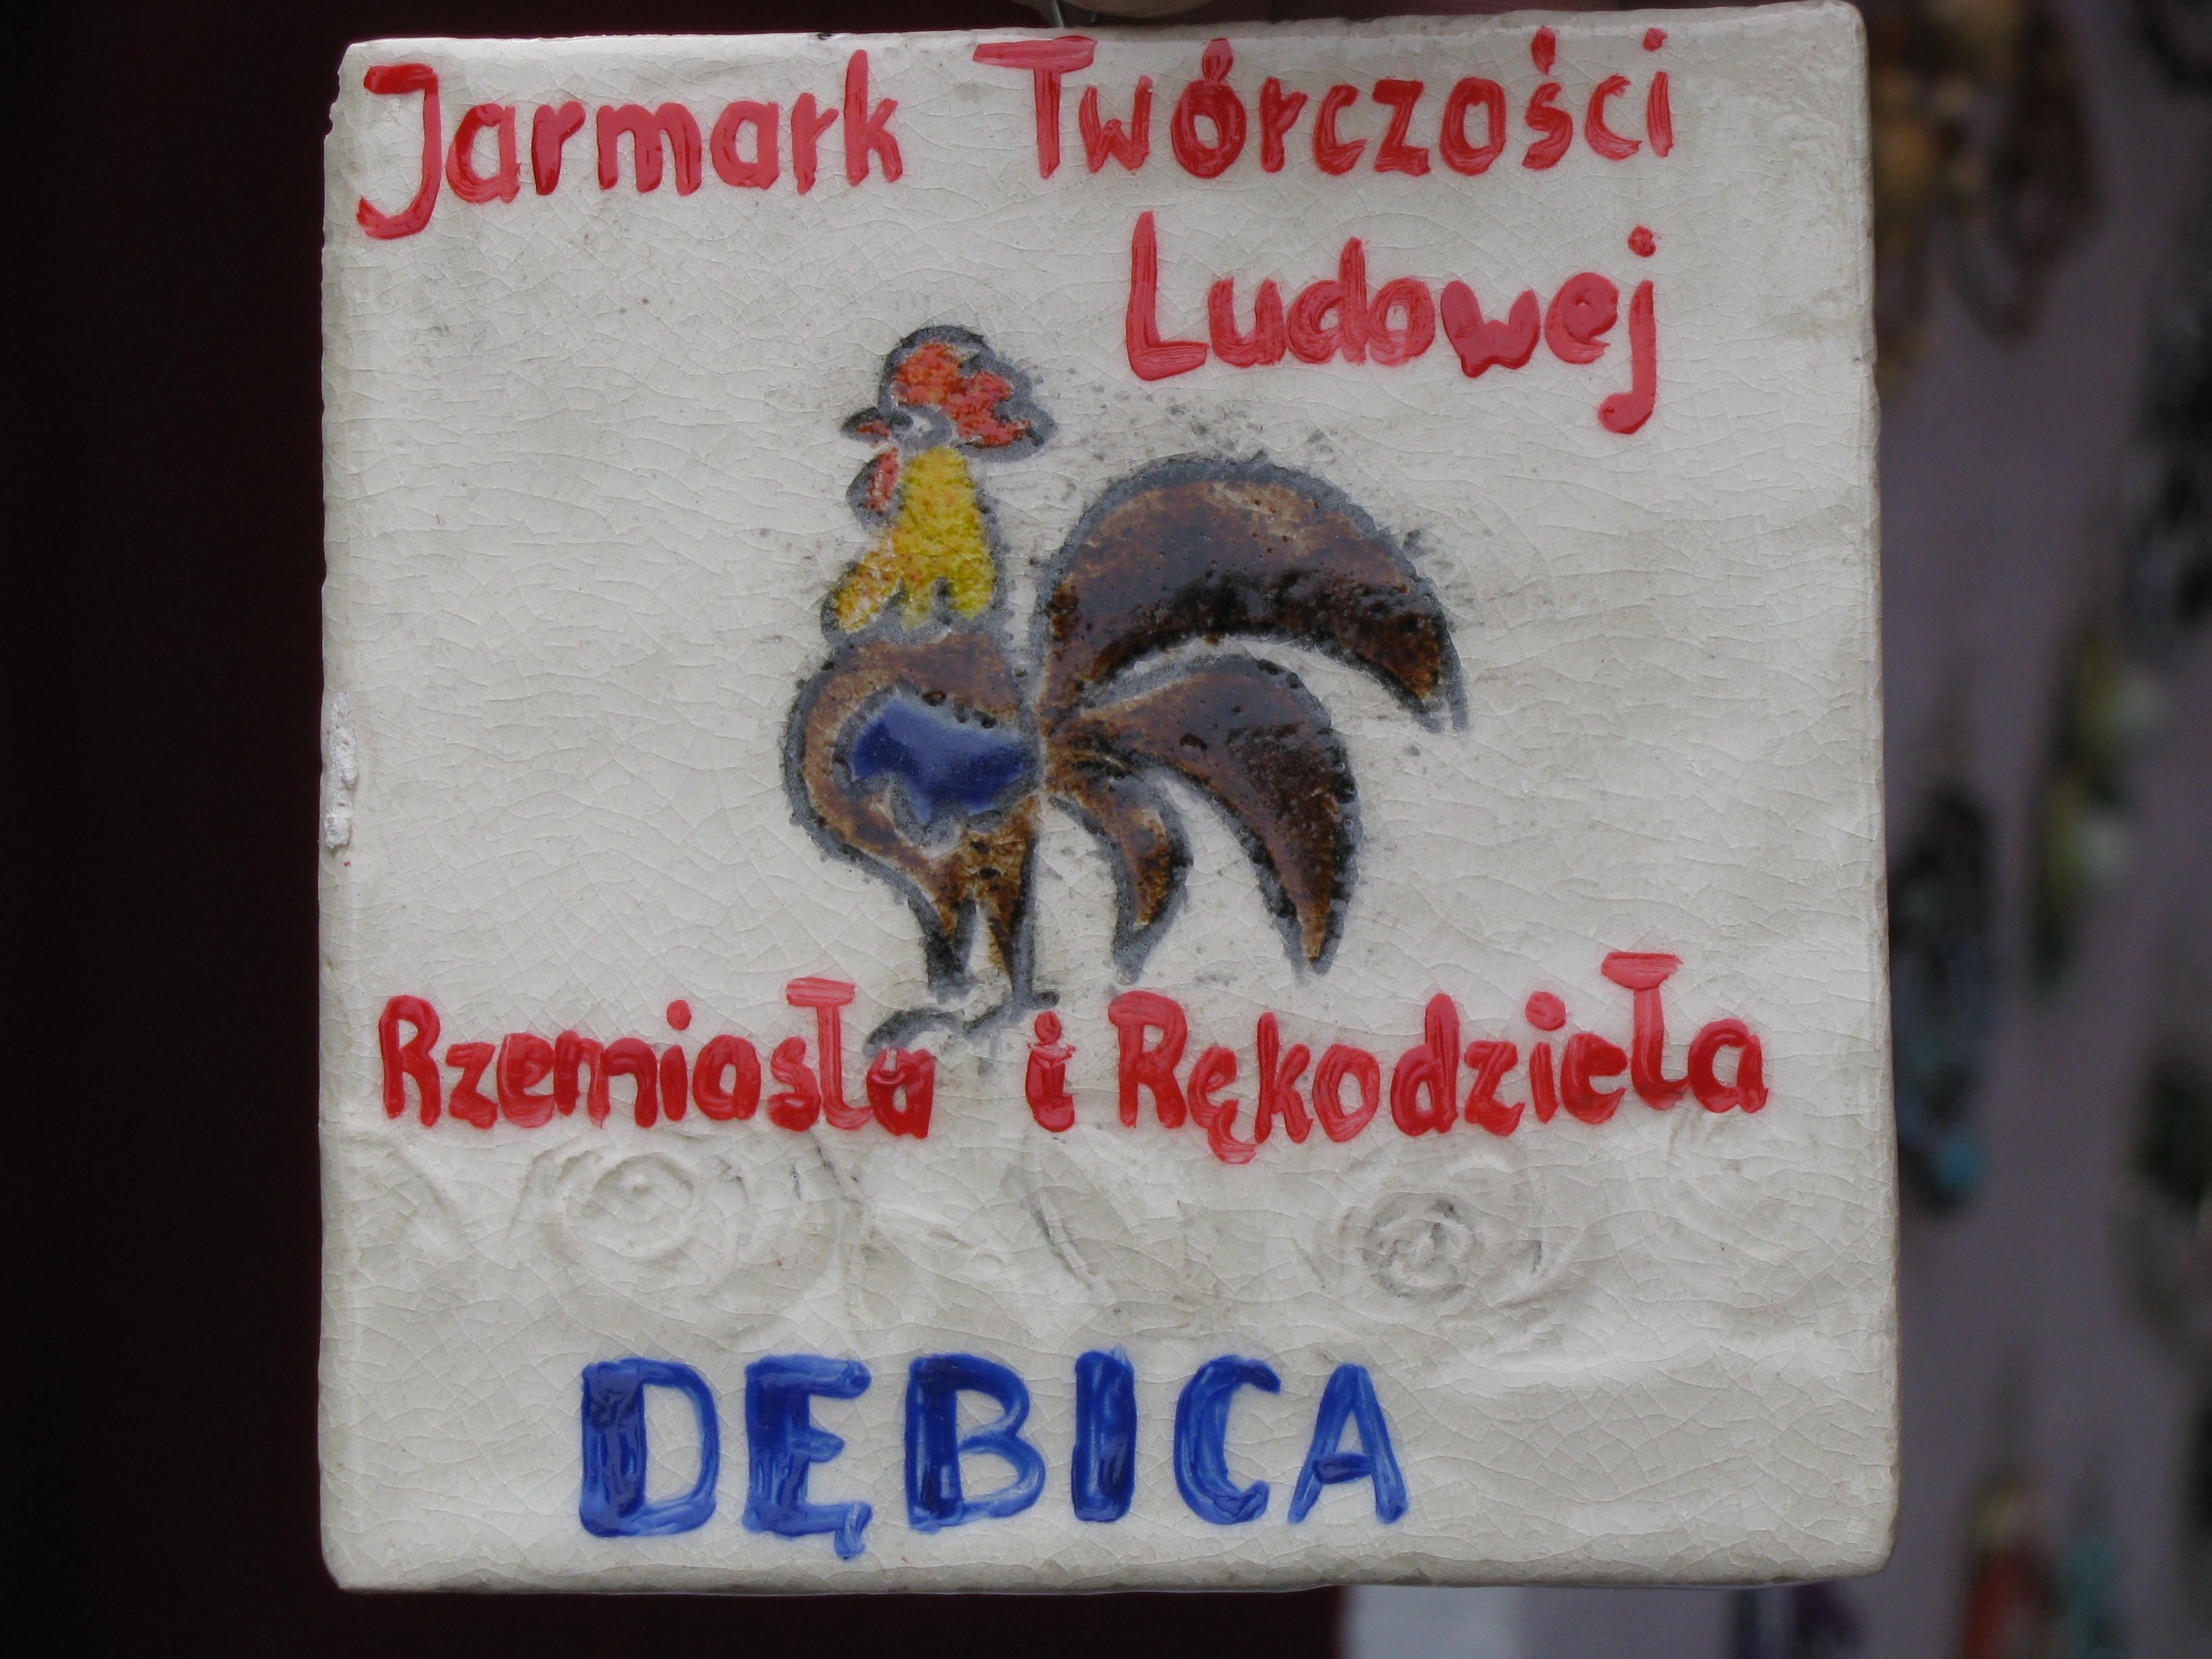 Jarmark Twórczości
Ludowej
Rzemiosła i Rękodzieła
DĘBICA